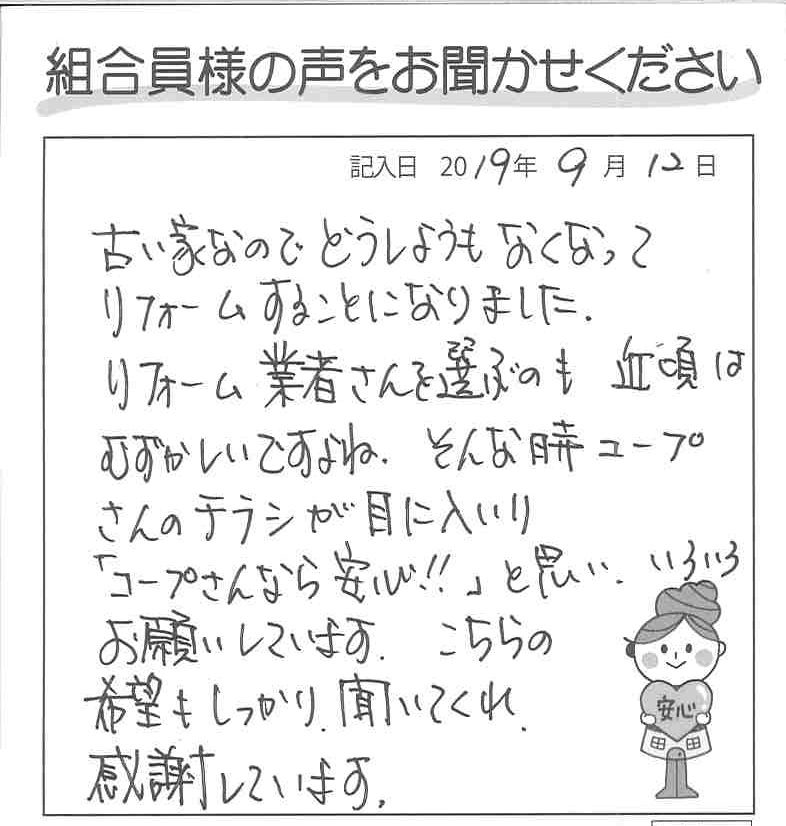 組合員様の声をお聞かせください
記入日 2019年 9月 12日
古い家なのでどうしようもなくなって
リフォームすることになりました.
リフォーム業者さんを選ぶのも 近頃は
むずかしいですよね. そんな時コープ
さんのチラシが目に入いり
「コープさんなら安心!!」と思い、いろいろ
お願いしています. こちらの
希望もしっかり、聞いてくれ、
感謝しています.
安心